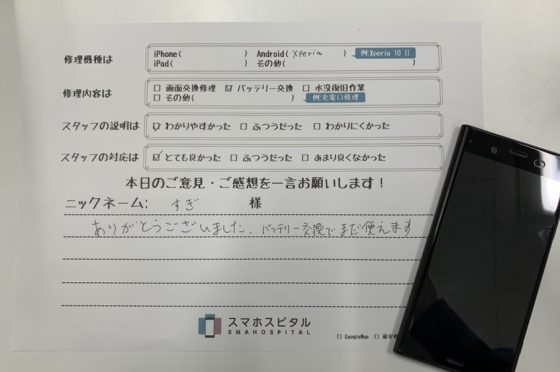 修理機種は
iPhone( ) Android( Xperia ) 例:Xperia 10 II
iPad( ) その他( )
修理内容は
□ 画面交換修理 ☑ バッテリー交換 □ 水没復旧作業
□ その他( ) 例:充電口修理
スタッフの説明は ☑ わかりやすかった □ ふつうだった □ わかりにくかった
スタッフの対応は ☑ とても良かった □ ふつうだった □ あまり良くなかった
本日のご意見・ご感想を一言お願いします!
ニックネーム: すぎ 様
ありがとうございました、バッテリー交換でまだ使えます
スマホスピタル
SMAHOSPITAL
□ GoogleMap □